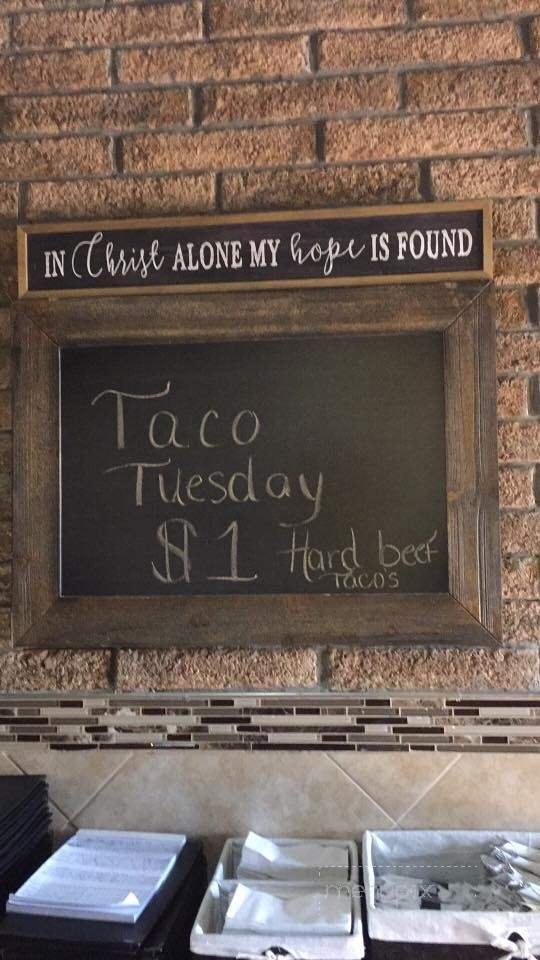 IN Christ ALONE MY hope IS FOUND
Taco
Tuesday
$1 Hard beef
Tacos
menupix